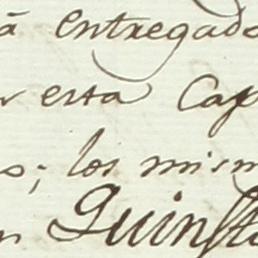 á entregado
r esta Cap
s; los mism
n Quinta